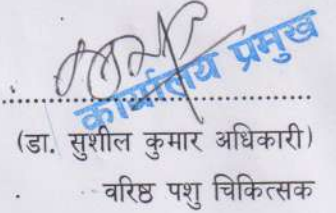 कार्यालय प्रमुख
(डा. सुशील कुमार अधिकारी)
वरिष्ठ पशु चिकित्सक